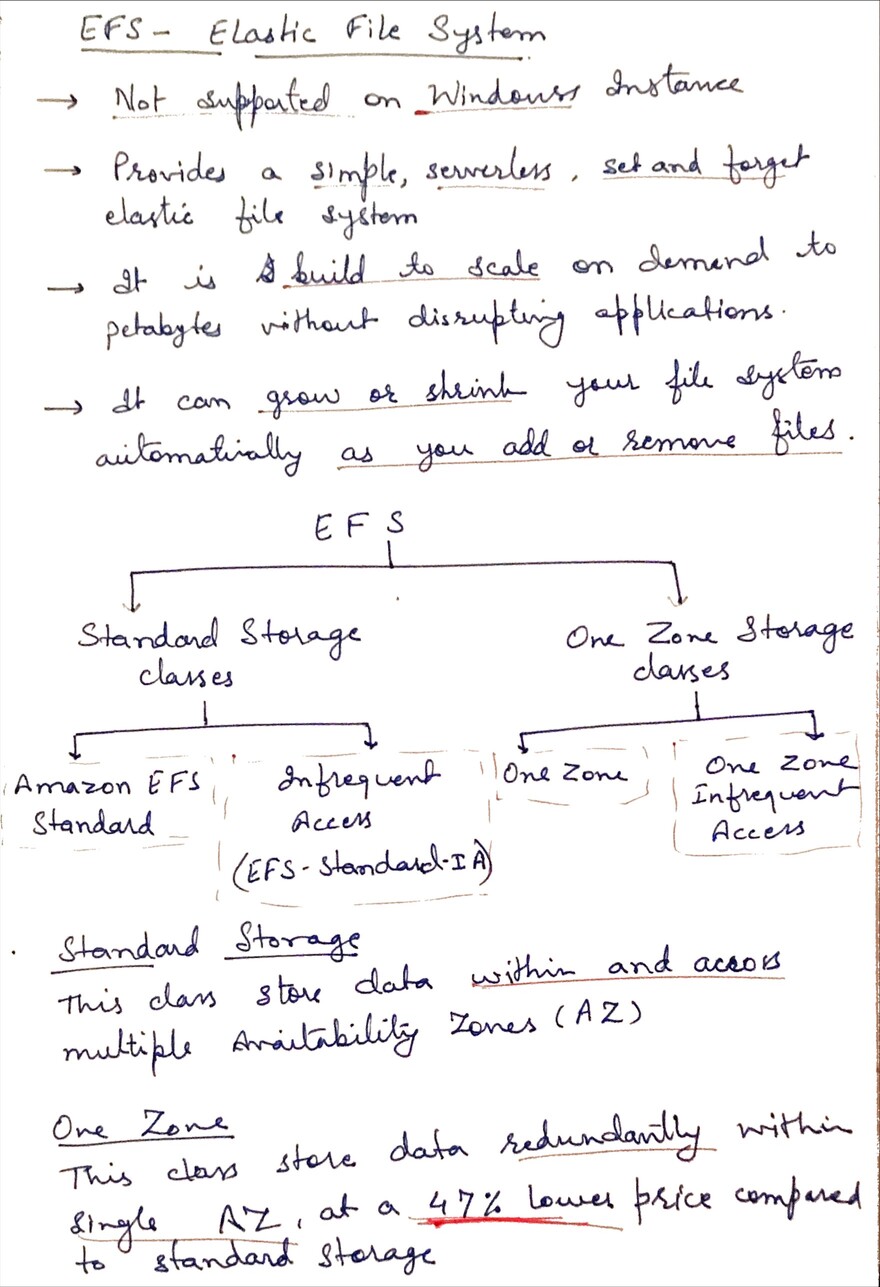 EFS - Elastic File System
→ Not supported on Windows Instance
→ Provides a simple, serverless, set and forget
elastic file system
→ It is build to scale on demand to
petabytes without disrupting applications.
→ It can grow or shrink your file system
automatically as you add or remove files.
EFS
Standard Storage
classes
One Zone Storage
classes
Amazon EFS
Standard
Infrequent
Access
(EFS-Standard-IA)
One Zone
One Zone
Infrequent
Access
Standard Storage
This class store data within and across
multiple Availability Zones (AZ)
One Zone
This class store data redundantly within
single AZ, at a 47% lower price compared
to standard storage